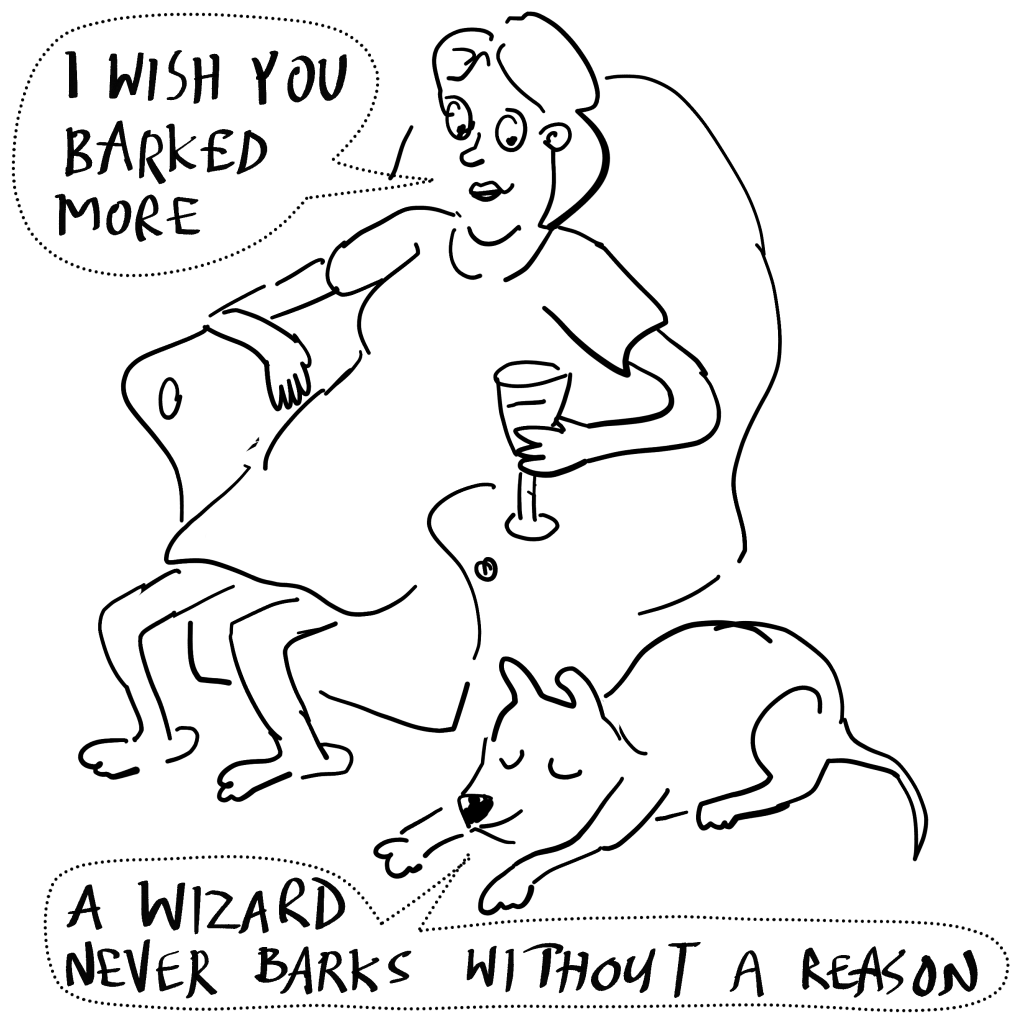 I WISH YOU
BARKED
MORE
A WIZARD
NEVER BARKS WITHOUT A REASON